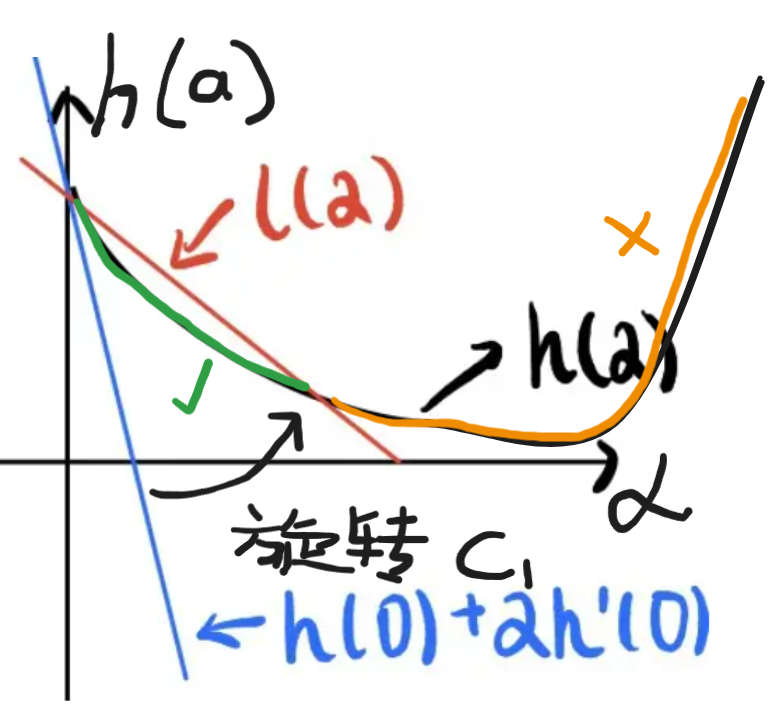 h(a)
l(α)
×
h(α)
✓
α
旋转 C₁
h(0)+αh'(0)